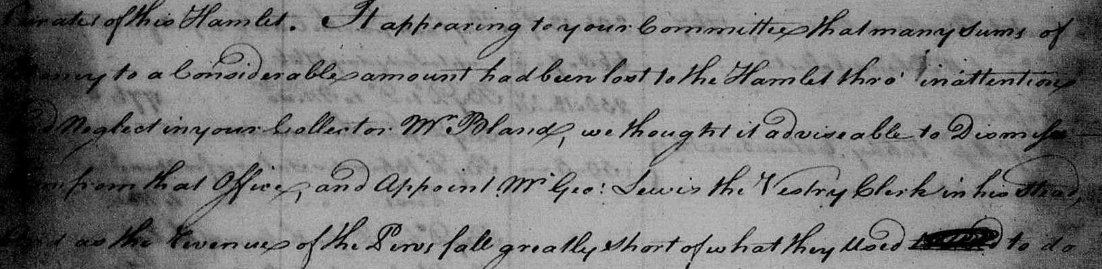 Curates of this Hamlet. It appearing to your Committee that many Sums of
Money to a Considerable amount had been lost to the Hamlet thro' inattention
and Neglect in your Collector Mr. Bland, we thought it adviseable to Dismiss
him from that Office, and Appoint Mr. Geo: Lewis the Vestry Clerk in his Stead,
And as the Revenue of the Pews fall greatly short of what they used to do